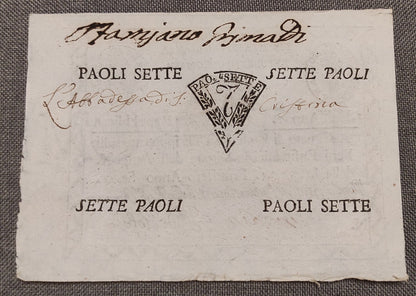 PAOLI SETTE SETTE PAOLI
PAO. SETTE
7
L'Abbadessa di S. Cristina
SETTE PAOLI PAOLI SETTE